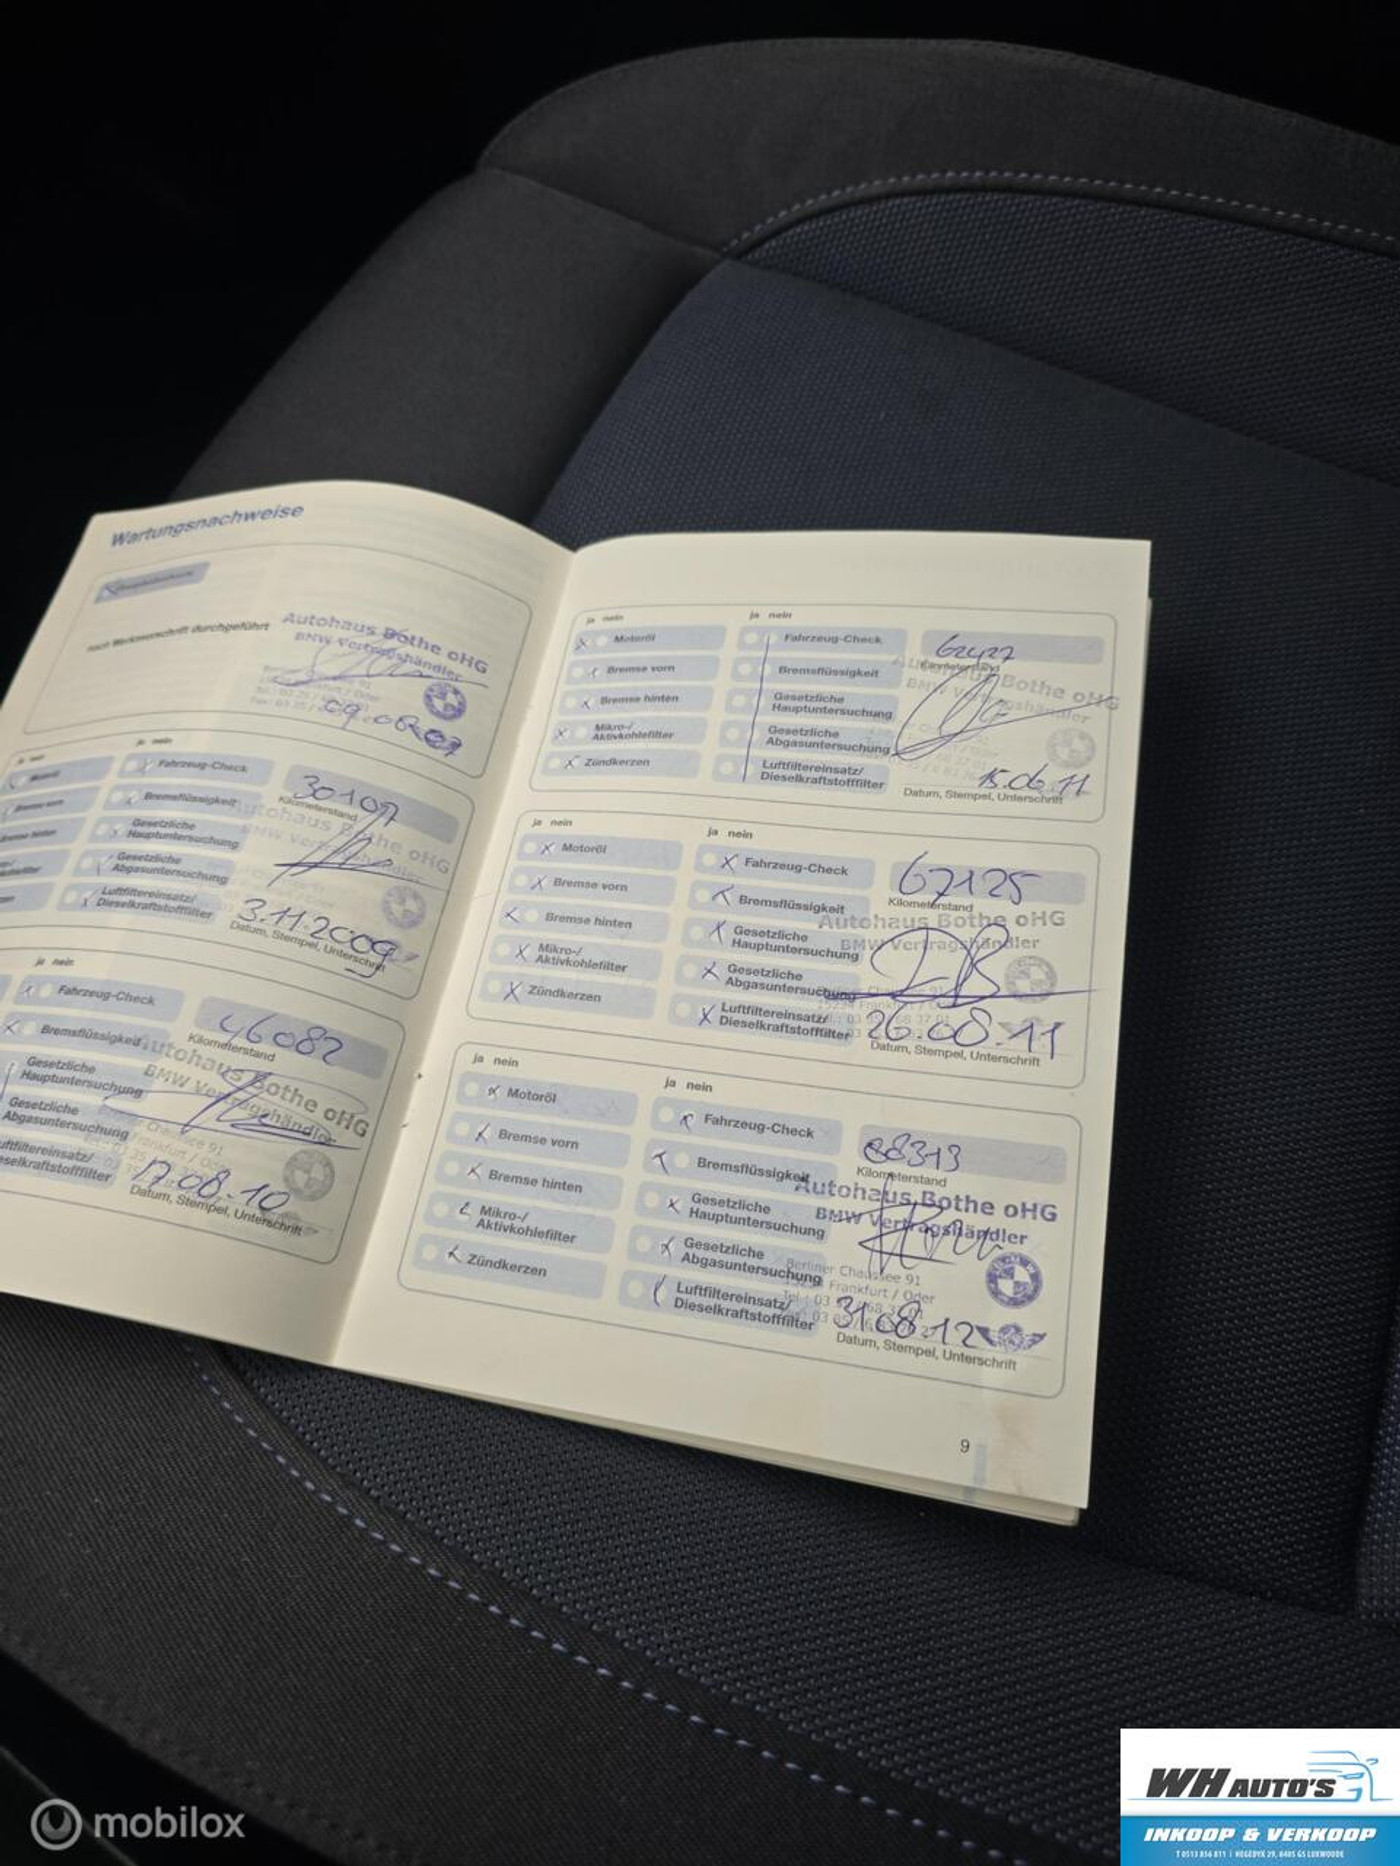 Wartungsnachweise
nach Werksvorschrift durchgeführt
Autohaus Bothe oHG
BMW Vertragshändler
ja nein
Motoröl
Bremse vorn
Bremse hinten
ja nein
Fahrzeug-Check
Bremsflüssigkeit
Gesetzliche
Hauptuntersuchung
Gesetzliche
Abgasuntersuchung
Luftfiltereinsatz/
Dieselkraftstofffilter
30107
Kilometerstand
Autohaus Bothe oHG
BMW Vertragshändler
3.11.2009
Datum, Stempel, Unterschrift
ja nein
Fahrzeug-Check
Bremsflüssigkeit
Gesetzliche
Hauptuntersuchung
Gesetzliche
Abgasuntersuchung
Luftfiltereinsatz/
Dieselkraftstofffilter
46082
Kilometerstand
Autohaus Bothe oHG
BMW Vertragshändler
17.08.10
Datum, Stempel, Unterschrift
ja nein
Motoröl
Bremse vorn
Bremse hinten
Mikro-/
Aktivkohlefilter
Zündkerzen
ja nein
Fahrzeug-Check
Bremsflüssigkeit
Gesetzliche
Hauptuntersuchung
Gesetzliche
Abgasuntersuchung
Luftfiltereinsatz/
Dieselkraftstofffilter
62427
Kilometerstand
Autohaus Bothe oHG
BMW Vertragshändler
15.06.11
Datum, Stempel, Unterschrift
ja nein
Motoröl
Bremse vorn
Bremse hinten
Mikro-/
Aktivkohlefilter
Zündkerzen
ja nein
Fahrzeug-Check
Bremsflüssigkeit
Gesetzliche
Hauptuntersuchung
Gesetzliche
Abgasuntersuchung
Luftfiltereinsatz/
Dieselkraftstofffilter
67125
Kilometerstand
Autohaus Bothe oHG
BMW Vertragshändler
26.08.11
Datum, Stempel, Unterschrift
ja nein
Motoröl
Bremse vorn
Bremse hinten
Mikro-/
Aktivkohlefilter
Zündkerzen
ja nein
Fahrzeug-Check
Bremsflüssigkeit
Gesetzliche
Hauptuntersuchung
Gesetzliche
Abgasuntersuchung
Luftfiltereinsatz/
Dieselkraftstofffilter
88313
Kilometerstand
Autohaus Bothe oHG
BMW Vertragshändler
Berliner Chaussee 91
Frankfurt / Oder
31.08.12
Datum, Stempel, Unterschrift
9
mobilox
WH AUTO'S
INKOOP & VERKOOP
T 0513 856 811 | HEGEDYK 29, 8405 GS LUXWOUDE